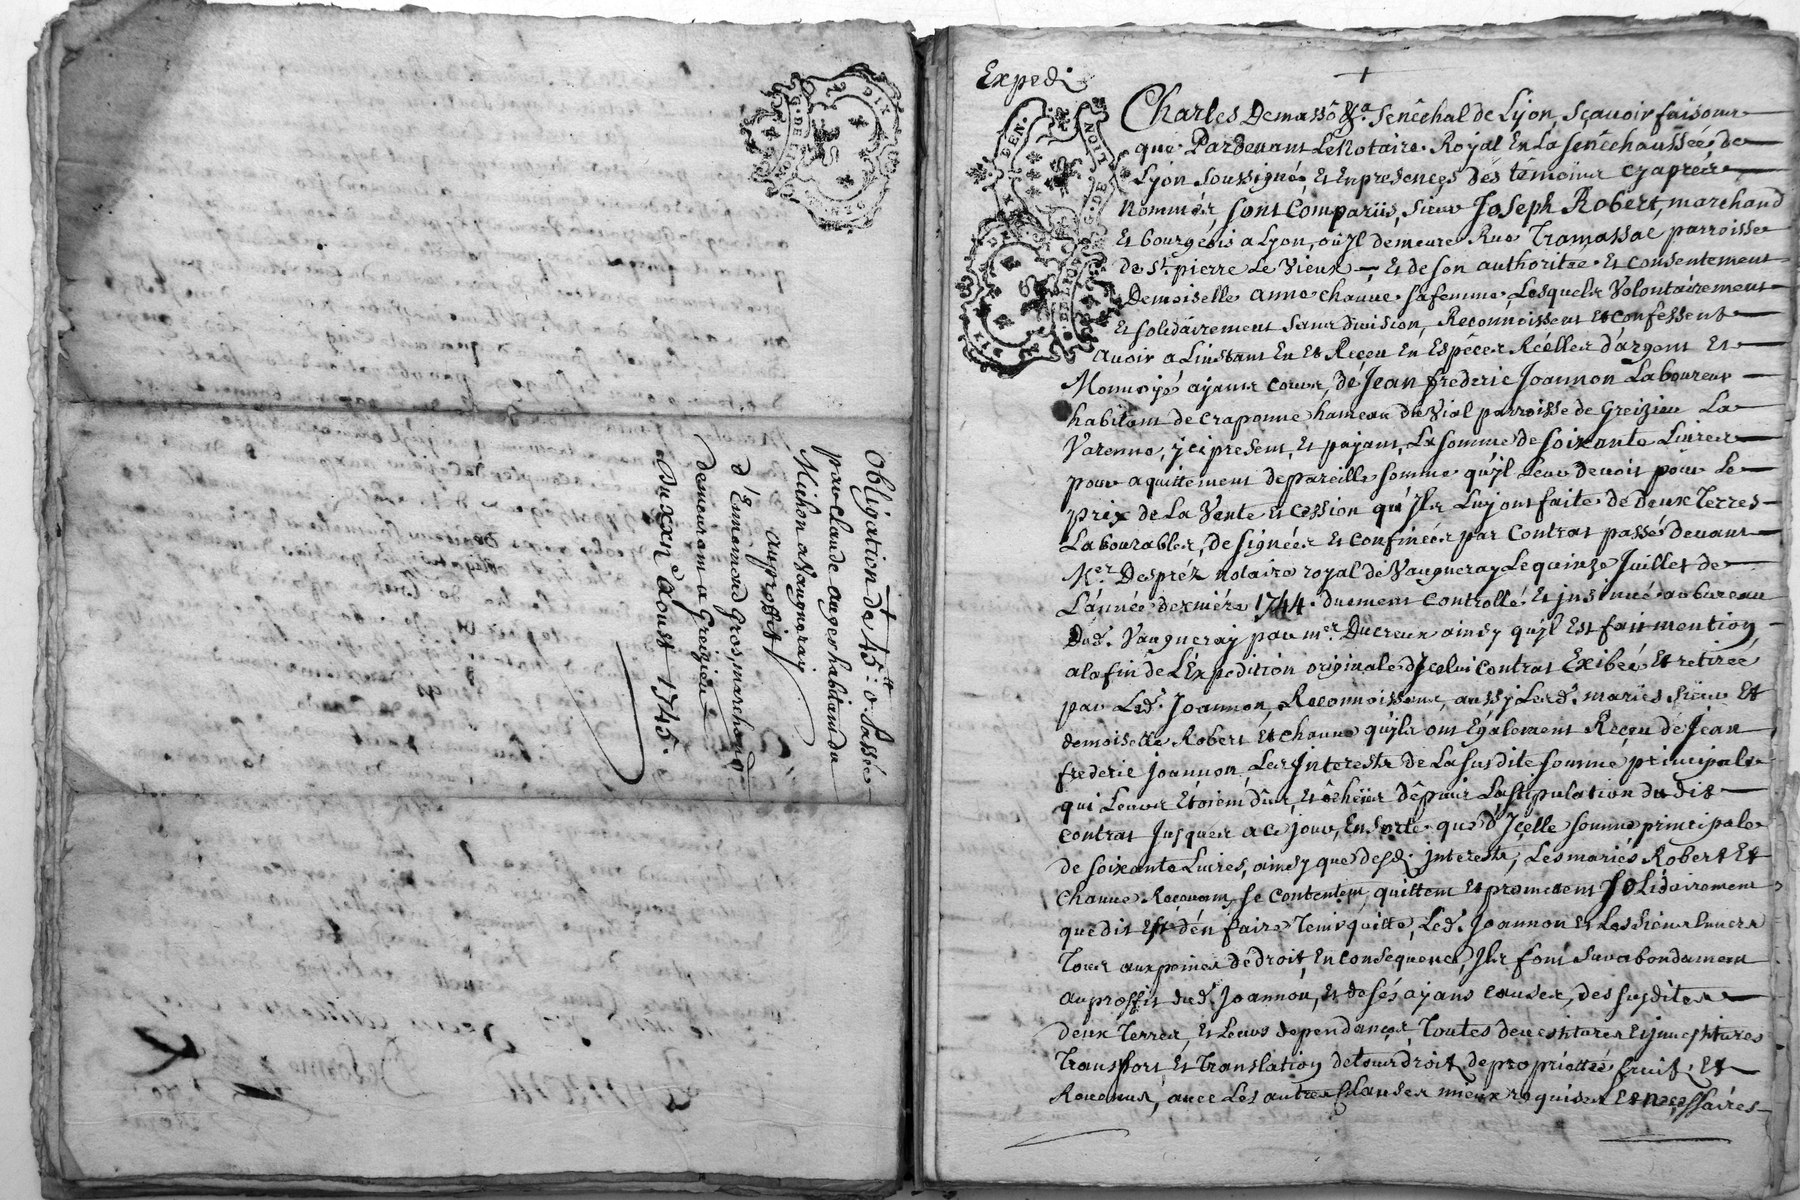 G. DE LION
DIX
DEN.
Obligation de 45ᵗᵗ: 0 s Passée
par claude auger habitant du
Michon a Vaugneray
au proffit
d'Ennemond Gros, marchand
demeurant a Greizieu
Du XXIIᵉ Aoust 1745.
Expedi
Charles Demasso &ᵃ. Senêchal de Lyon, Sçavoir faisons
que Pardevant Le Notaire Royal En La Senêchaussée de
Lyon Soussigné, Et En presences des têmoins cy aprés
Nommés, Sont Comparus, Sieur Joseph Robert, marchand
Et bourgeois a Lyon, ou yl demeure Rue Tramassac parroisse
de Sᵗ. pierre Le Vieux — Et de Son authoritée Et consentement
Demoiselle anne chauve Sa femme, Lesquels Volontairement
Et Solidairement Sans division, Reconnoissent Et confessent
avoir a Linstant Eu Et Reçeu En Espéces Réelles d'argent Et
Monnoyé ayant cours, de Jean frederic Joannon Laboureur
habitant de craponne hameau du Vial parroisse de Greizieu La
Varenne, ycy present, Et payant, La Somme de Soixante Livres
pour aquittement de pareille Somme qu'yl Leur devoit pour Le
prix de La Vente Et cession qu'Jls Luy ont faite de Deux Terres
Labourables, désignées Et confinées par Contrat passé devant
Mᵉʳ. Despréz notaire royal de Vaugneray Le quinze Juillet de
L'année derniére 1744. duement controllé Et jnsinué au bureau
Dud. Vaugneray par mᵉʳ. Ducreux ainsy qu'yl Est fait mention
a la fin de L'Expedition originale d'Jcelui contrat Exibée Et retirée
par Led. Joannon, Reconnoissent, aussy Lesd. mariés Sieur Et
demoiselle Robert Et chauve qu'yls ont Egalement Reçeu de Jean
frederic Joannon, Les Jnterests de La Susdite Somme principale
qui Leurs Etoient dûs, Et êcheüs dêpuis La Stipulation du dit
contrat Jusques a ce jour, En Sorte que d'Jcelle Somme principale
de Soixante Livres, ainsy que desd. jnterests, Les mariés Robert Et
chauve Reçevans, Se contentent, quittent Et promettent Solidairement
que dit Est d'én faire Tenir quitte, Led. Joannon Et Les Siens Envers
Tous aux peines de droit, En consequence, Jls font Surabondament
au proffit dud. Joannon, Et de Sés ayans causes, des Susdites
deux Terres, Et Leurs dependances, Toutes devestitures Et jnvestitures
Transport Et Translation de Tous droit, de proprietée, fruit, Et
Revenus, avec Lés autres Clauses mieux requises Et neçessaires